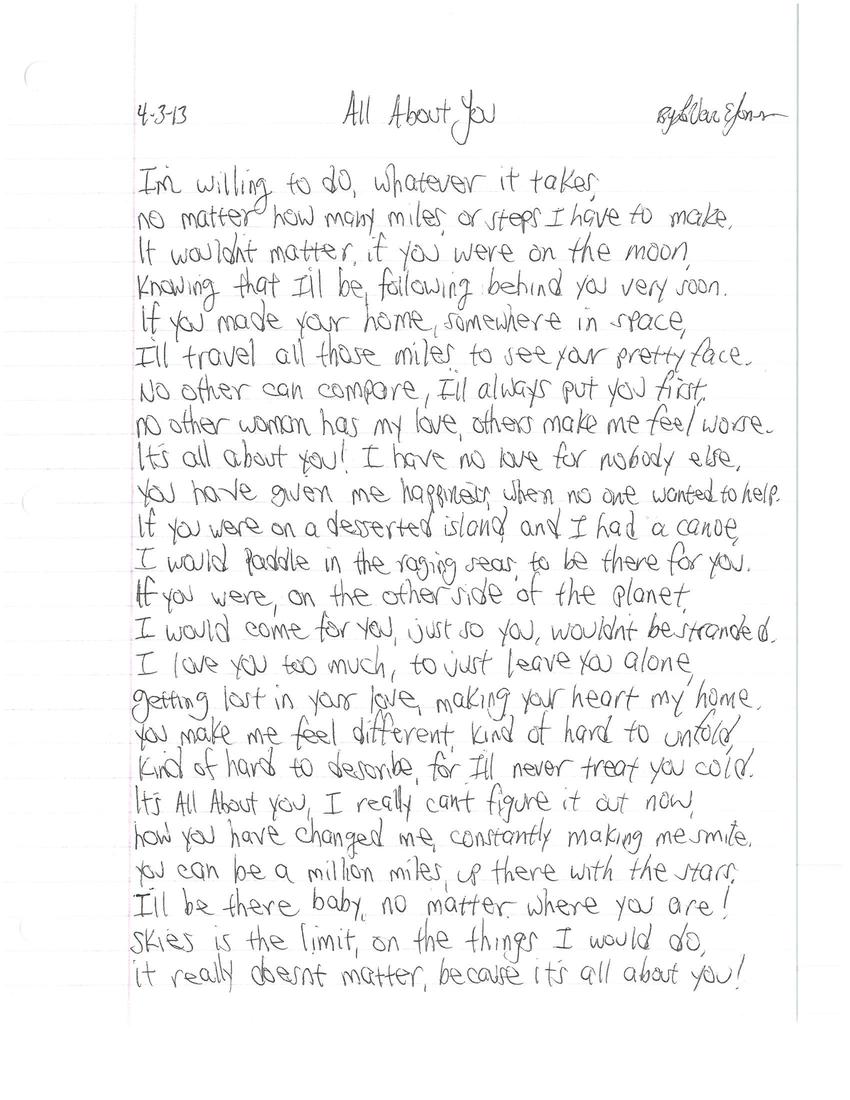 4-3-13 All About You By
I'm willing to do, whatever it takes,
no matter how many miles, or steps I have to make.
It wouldn't matter, if you were on the moon,
Knowing that I'll be, following behind you very soon.
If you made your home, somewhere in space,
I'll travel all those miles to see your pretty face.
No other can compare, I'll always put you first,
no other woman has my love, others make me feel worse.
It's all about you! I have no love for nobody else,
you have given me happiness, when no one wanted to help.
If you were on a desserted island, and I had a canoe,
I would paddle in the raging seas, to be there for you.
If you were, on the other side of the planet,
I would come for you, just so you, wouldn't be stranded.
I love you too much, to just leave you alone,
getting lost in your love, making your heart my home.
You make me feel different, kind of hard to unfold,
Kind of hard to describe, for I'll never treat you cold.
It's All About you, I really can't figure it out now,
how you have changed me, constantly making me smile.
You can be a million miles, up there with the stars,
I'll be there baby, no matter where you are!
Skies is the limit, on the things I would do,
it really doesn't matter, because it's all about you!